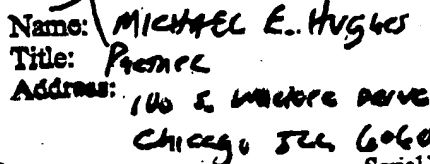 Name: MICHAEL E. HUGHES
Title: Partner
Address: 100 S. WACKER DRIVE
Chicago ILL 6060